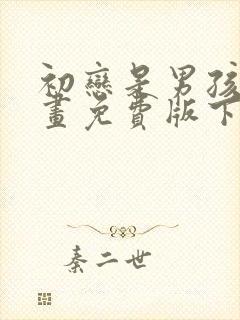 初戀是男孩
畫免費版下
秦二世